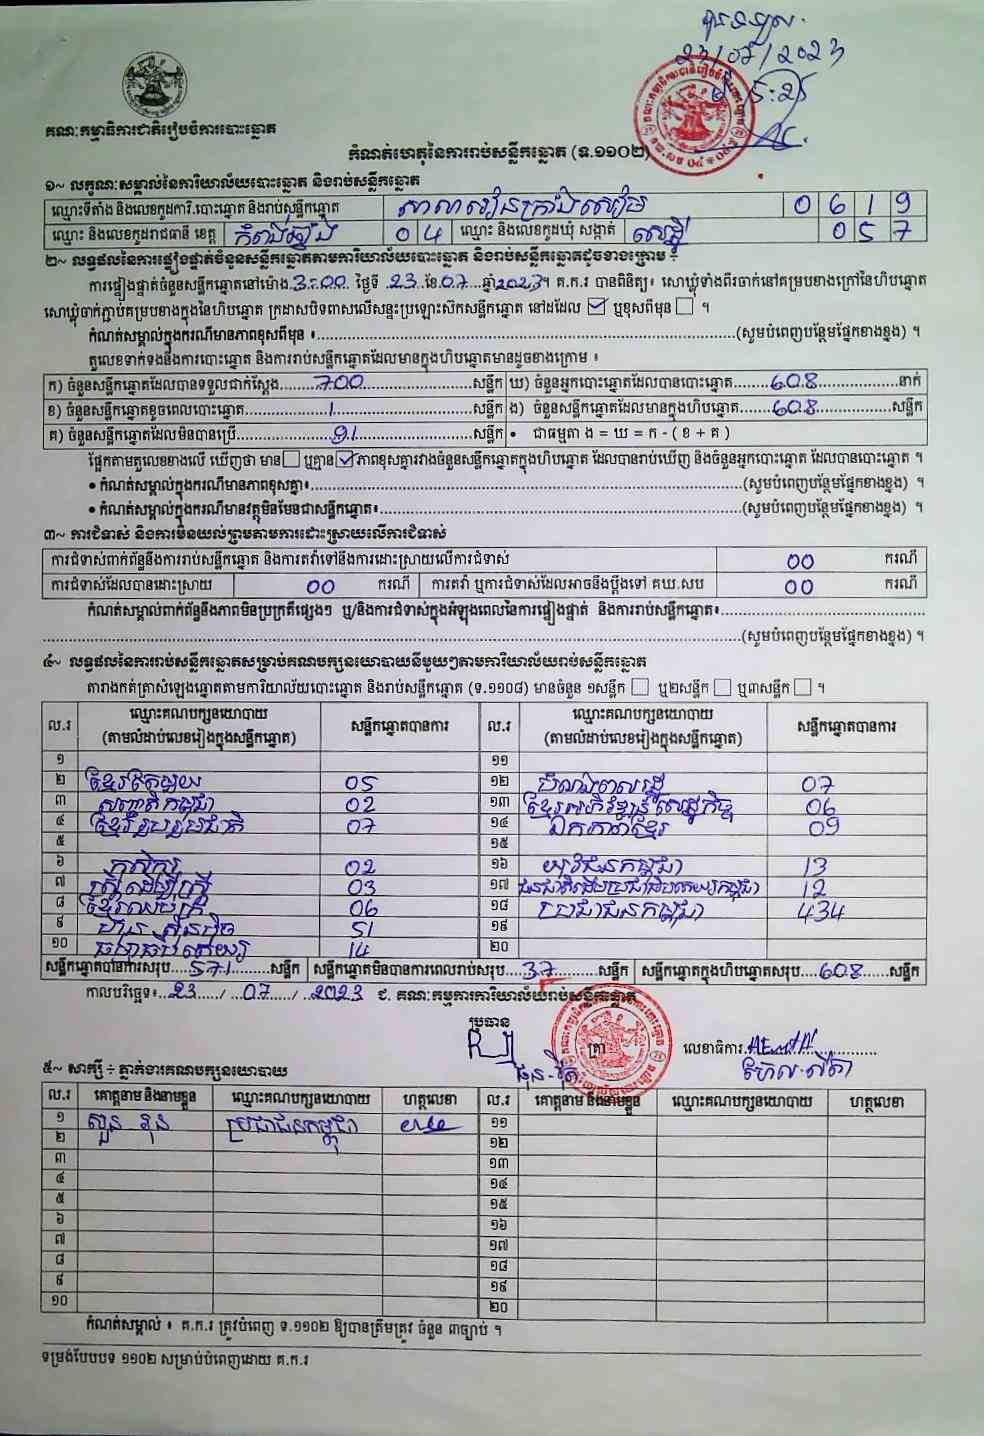 23/07/2023
គណៈកម្មាធិការជាតិរៀបចំការបោះឆ្នោត
កំណត់ហេតុនៃការរាប់សន្លឹកឆ្នោត (ទ.១១០២)
១~ លក្ខណៈសម្គាល់នៃការិយាល័យបោះឆ្នោត និងរាប់សន្លឹកឆ្នោត
ឈ្មោះទីតាំង និងលេខកូដការិ.បោះឆ្នោត និងរាប់សន្លឹកឆ្នោត សាលារៀនក្រាំងសៀម 0 6 1 9
ឈ្មោះ និងលេខកូដរាជធានី ខេត្ត កំពង់ឆ្នាំង 0 4 ឈ្មោះ និងលេខកូដឃុំ សង្កាត់ សេដ្ឋី 0 5 7
២~ លទ្ធផលនៃការផ្ទៀងផ្ទាត់ចំនួនសន្លឹកឆ្នោតតាមការិយាល័យបោះឆ្នោត និងរាប់សន្លឹកឆ្នោតដូចខាងក្រោម ÷
ការផ្ទៀងផ្ទាត់ចំនួនសន្លឹកឆ្នោតនៅម៉ោង 3:00 ថ្ងៃទី 23 ខែ 07 ឆ្នាំ 2023។ គ.ក.រ បានពិនិត្យ៖ សោឃ្លុំទាំងពីរចាក់នៅគម្របខាងក្រៅនៃហិបឆ្នោត
សោឃ្លុំចាក់ភ្ជាប់គម្របខាងក្នុងនៃហិបឆ្នោត ក្រដាសបិទពាសលើសន្ទះប្រឡោះស៊កសន្លឹកឆ្នោត នៅដដែល ☑ ឬខុសពីមុន ☐ ។
កំណត់សម្គាល់ក្នុងករណីមានភាពខុសពីមុន ៖ (សូមបំពេញបន្ថែមផ្នែកខាងខ្នង) ។
តួលេខទាក់ទងនឹងការបោះឆ្នោត និងការរាប់សន្លឹកឆ្នោតដែលមានក្នុងហិបឆ្នោតមានដូចខាងក្រោម ៖
ក) ចំនួនសន្លឹកឆ្នោតដែលបានទទួលជាក់ស្តែង 700 សន្លឹក ឃ) ចំនួនអ្នកបោះឆ្នោតដែលបានបោះឆ្នោត 608 នាក់
ខ) ចំនួនសន្លឹកឆ្នោតខូចពេលបោះឆ្នោត 1 សន្លឹក ង) ចំនួនសន្លឹកឆ្នោតដែលមានក្នុងហិបឆ្នោត 608 សន្លឹក
គ) ចំនួនសន្លឹកឆ្នោតដែលមិនបានប្រើ 91 សន្លឹក • ជាធម្មតា ង = ឃ = ក - ( ខ + គ )
ផ្អែកតាមតួលេខខាងលើ ឃើញថា មាន ☐ ឬគ្មាន ☑ ភាពខុសគ្នារវាងចំនួនសន្លឹកឆ្នោតក្នុងហិបឆ្នោត ដែលបានរាប់ឃើញ និងចំនួនអ្នកបោះឆ្នោត ដែលបានបោះឆ្នោត ។
• កំណត់សម្គាល់ក្នុងករណីមានភាពខុសគ្នា៖ (សូមបំពេញបន្ថែមផ្នែកខាងខ្នង) ។
• កំណត់សម្គាល់ក្នុងករណីមានវត្ថុមិនមែនជាសន្លឹកឆ្នោត៖ (សូមបំពេញបន្ថែមផ្នែកខាងខ្នង) ។
៣~ ការជំទាស់ និងការមិនយល់ព្រមតាមការដោះស្រាយលើការជំទាស់
ការជំទាស់ពាក់ព័ន្ធនឹងការរាប់សន្លឹកឆ្នោត និងការតវ៉ាទៅនឹងការដោះស្រាយលើការជំទាស់ 00 ករណី
ការជំទាស់ដែលបានដោះស្រាយ 00 ករណី ការតវ៉ា ឬការជំទាស់ដែលអាចនឹងប្តឹងទៅ គឃ.សប 00 ករណី
កំណត់សម្គាល់ពាក់ព័ន្ធនឹងភាពមិនប្រក្រតីផ្សេងៗ ឬ/និងការជំទាស់ក្នុងអំឡុងពេលនៃការផ្ទៀងផ្ទាត់ និងការរាប់សន្លឹកឆ្នោត៖
(សូមបំពេញបន្ថែមផ្នែកខាងខ្នង) ។
៤~ លទ្ធផលនៃការរាប់សន្លឹកឆ្នោតសម្រាប់គណបក្សនយោបាយនីមួយៗតាមការិយាល័យរាប់សន្លឹកឆ្នោត
តារាងកត់ត្រាសំឡេងឆ្នោតតាមការិយាល័យបោះឆ្នោត និងរាប់សន្លឹកឆ្នោត (ទ.១១០៨) មានចំនួន ១សន្លឹក ☐ ឬ២សន្លឹក ☐ ឬ៣សន្លឹក ☐ ។
ល.រ ឈ្មោះគណបក្សនយោបាយ (តាមលំដាប់លេខរៀងក្នុងសន្លឹកឆ្នោត) សន្លឹកឆ្នោតបានការ ល.រ ឈ្មោះគណបក្សនយោបាយ (តាមលំដាប់លេខរៀងក្នុងសន្លឹកឆ្នោត) សន្លឹកឆ្នោតបានការ
១ ១១
២ ខ្មែរតែមួយ 05 ១២ សំណាងពលរដ្ឋ 07
៣ សញ្ជាតិកម្ពុជា 02 ១៣ ខ្មែរអភិវឌ្ឍន៍សេដ្ឋកិច្ច 06
៤ ខ្មែររួបរួមជាតិ 07 ១៤ ឯកភាពខ្មែរ 09
៥ ១៥
៦ កសិករ 02 ១៦ យុវជនកម្ពុជា 13
៧ ស្ត្រីដើម្បីស្ត្រី 03 ១៧ ជនជាតិដើមប្រជាធិបតេយ្យកម្ពុជា 12
៨ ខ្មែរឈប់ក្រ 06 ១៨ ប្រជាជនកម្ពុជា 434
៩ ហ៊្វុនស៊ិនប៉ិច 51 ១៩
១០ ធម្មាធិបតេយ្យ 14 ២០
សន្លឹកឆ្នោតបានការសរុប 571 សន្លឹក សន្លឹកឆ្នោតមិនបានការពេលរាប់សរុប 37 សន្លឹក សន្លឹកឆ្នោតក្នុងហិបឆ្នោតសរុប 608 សន្លឹក
កាលបរិច្ឆេទ៖ 23 / 07 / 2023 ជ. គណៈកម្មការការិយាល័យរាប់សន្លឹកឆ្នោត
ប្រធាន ត្រា លេខាធិការ
៥~ សាក្សី ÷ ភ្នាក់ងារគណបក្សនយោបាយ
ល.រ គោត្តនាម និងនាមខ្លួន ឈ្មោះគណបក្សនយោបាយ ហត្ថលេខា ល.រ គោត្តនាម និងនាមខ្លួន ឈ្មោះគណបក្សនយោបាយ ហត្ថលេខា
១ សួន ខុន ប្រជាជនកម្ពុជា ១១
២ ១២
៣ ១៣
៤ ១៤
៥ ១៥
៦ ១៦
៧ ១៧
៨ ១៨
៩ ១៩
១០ ២០
កំណត់សម្គាល់ ៖ គ.ក.រ ត្រូវបំពេញ ទ.១១០២ ឱ្យបានត្រឹមត្រូវ ចំនួន ៣ច្បាប់ ។
ទម្រង់បែបបទ ១១០២ សម្រាប់បំពេញដោយ គ.ក.រ